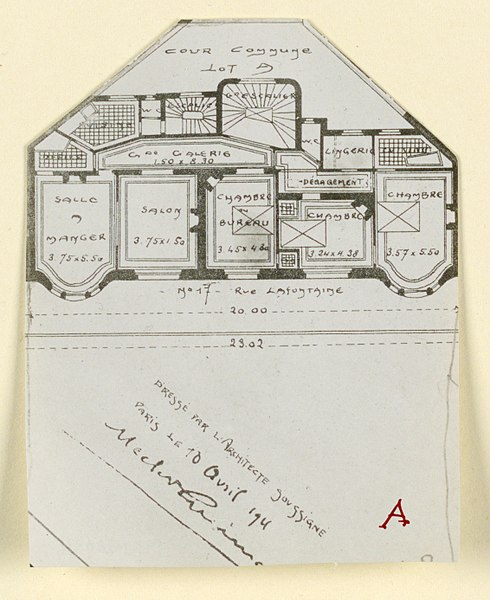 COUR COMMUNE
LOT A
Gd ESCALIER
W.C
LINGERIE
Gde GALERIE
1.50 x 8.30
DÉGAGEMENT
SALLE
A
MANGER
3.75x5.50
SALON
3.75x1.50
CHAMBRE
ou
BUREAU
3.45x4.80
CHAMBRE
3.24x4.38
CHAMBRE
3.57x5.50
No 17 - RUE LAFONTAINE
20.00
23.02
DRESSÉ PAR L'ARCHITECTE SOUSSIGNÉ
PARIS LE 10 Avril 1911
Hector Guimard
A